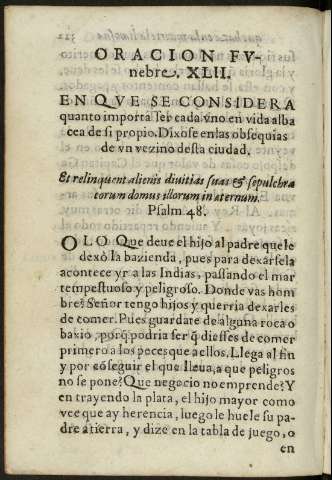 ORACION FV-
nebre, XLII.
EN QVE SE CONSIDERA
quanto importa ser cada vno en vida alba
cea de si propio. Dixose en las obsequias
de vn vezino desta ciudad.
Et relinquent alienis diuitias suas & sepulchra
eorum domus illorum in æternum.
Psalm 48.
O LO Que deue el hijo al padre que le
dexò la hazienda, pues para dexarsela
acontece yr a las Indias, passando el mar
tempestuoso y peligroso. Donde vas hom
bre? Señor tengo hijos y querria dexarles
de comer. Pues guardate de alguna roca o
baxio, porq̃ podria ser q̃ diesses de comer
primero a los peces que a ellos. Llega al fin
y por cõseguir el que lleua, a que peligros
no se pone? Que negocio no emprende? Y
en trayendo la plata, el hijo mayor como
vee que ay herencia, luego le huele su pa-
dre a tierra, y dize en la tabla de juego, o
en